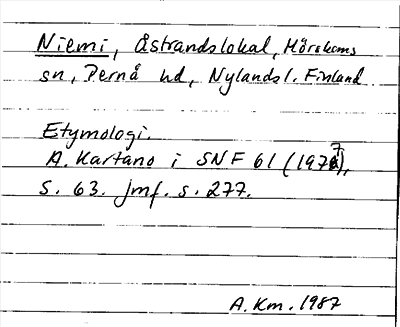 Niemi, Åstrandslokal, Mörskoms
sn, Pernå hd, Nylands l. Finland
Etymologi.
A. Kartano i SNF 61 (1977),
S. 63. jmf. s. 277.
A. Km. 1987